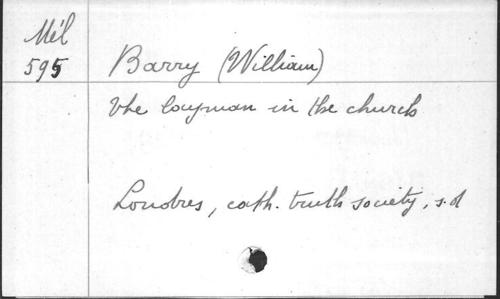 Mél
595
Barry (William)
The layman in the church
Londres, cath. truth society, s.d